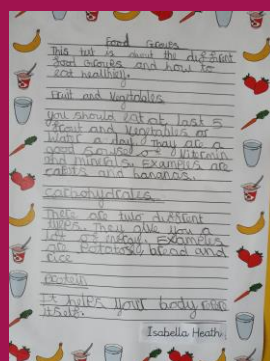 Food Groups
This text is about the different
food groups and how to
eat healthily.
Fruit and Vegetables
You should eat at last 5
fruit and vegetables or
water a day. They are a
good source of vitamin
and minerals. Examples are
carrots and bananas.
Carbohydrates
There are two different
types. They give you a
lot of energy. Examples
are potatoes, bread and
rice
Protein
It helps your body
itself.
Isabella Heath